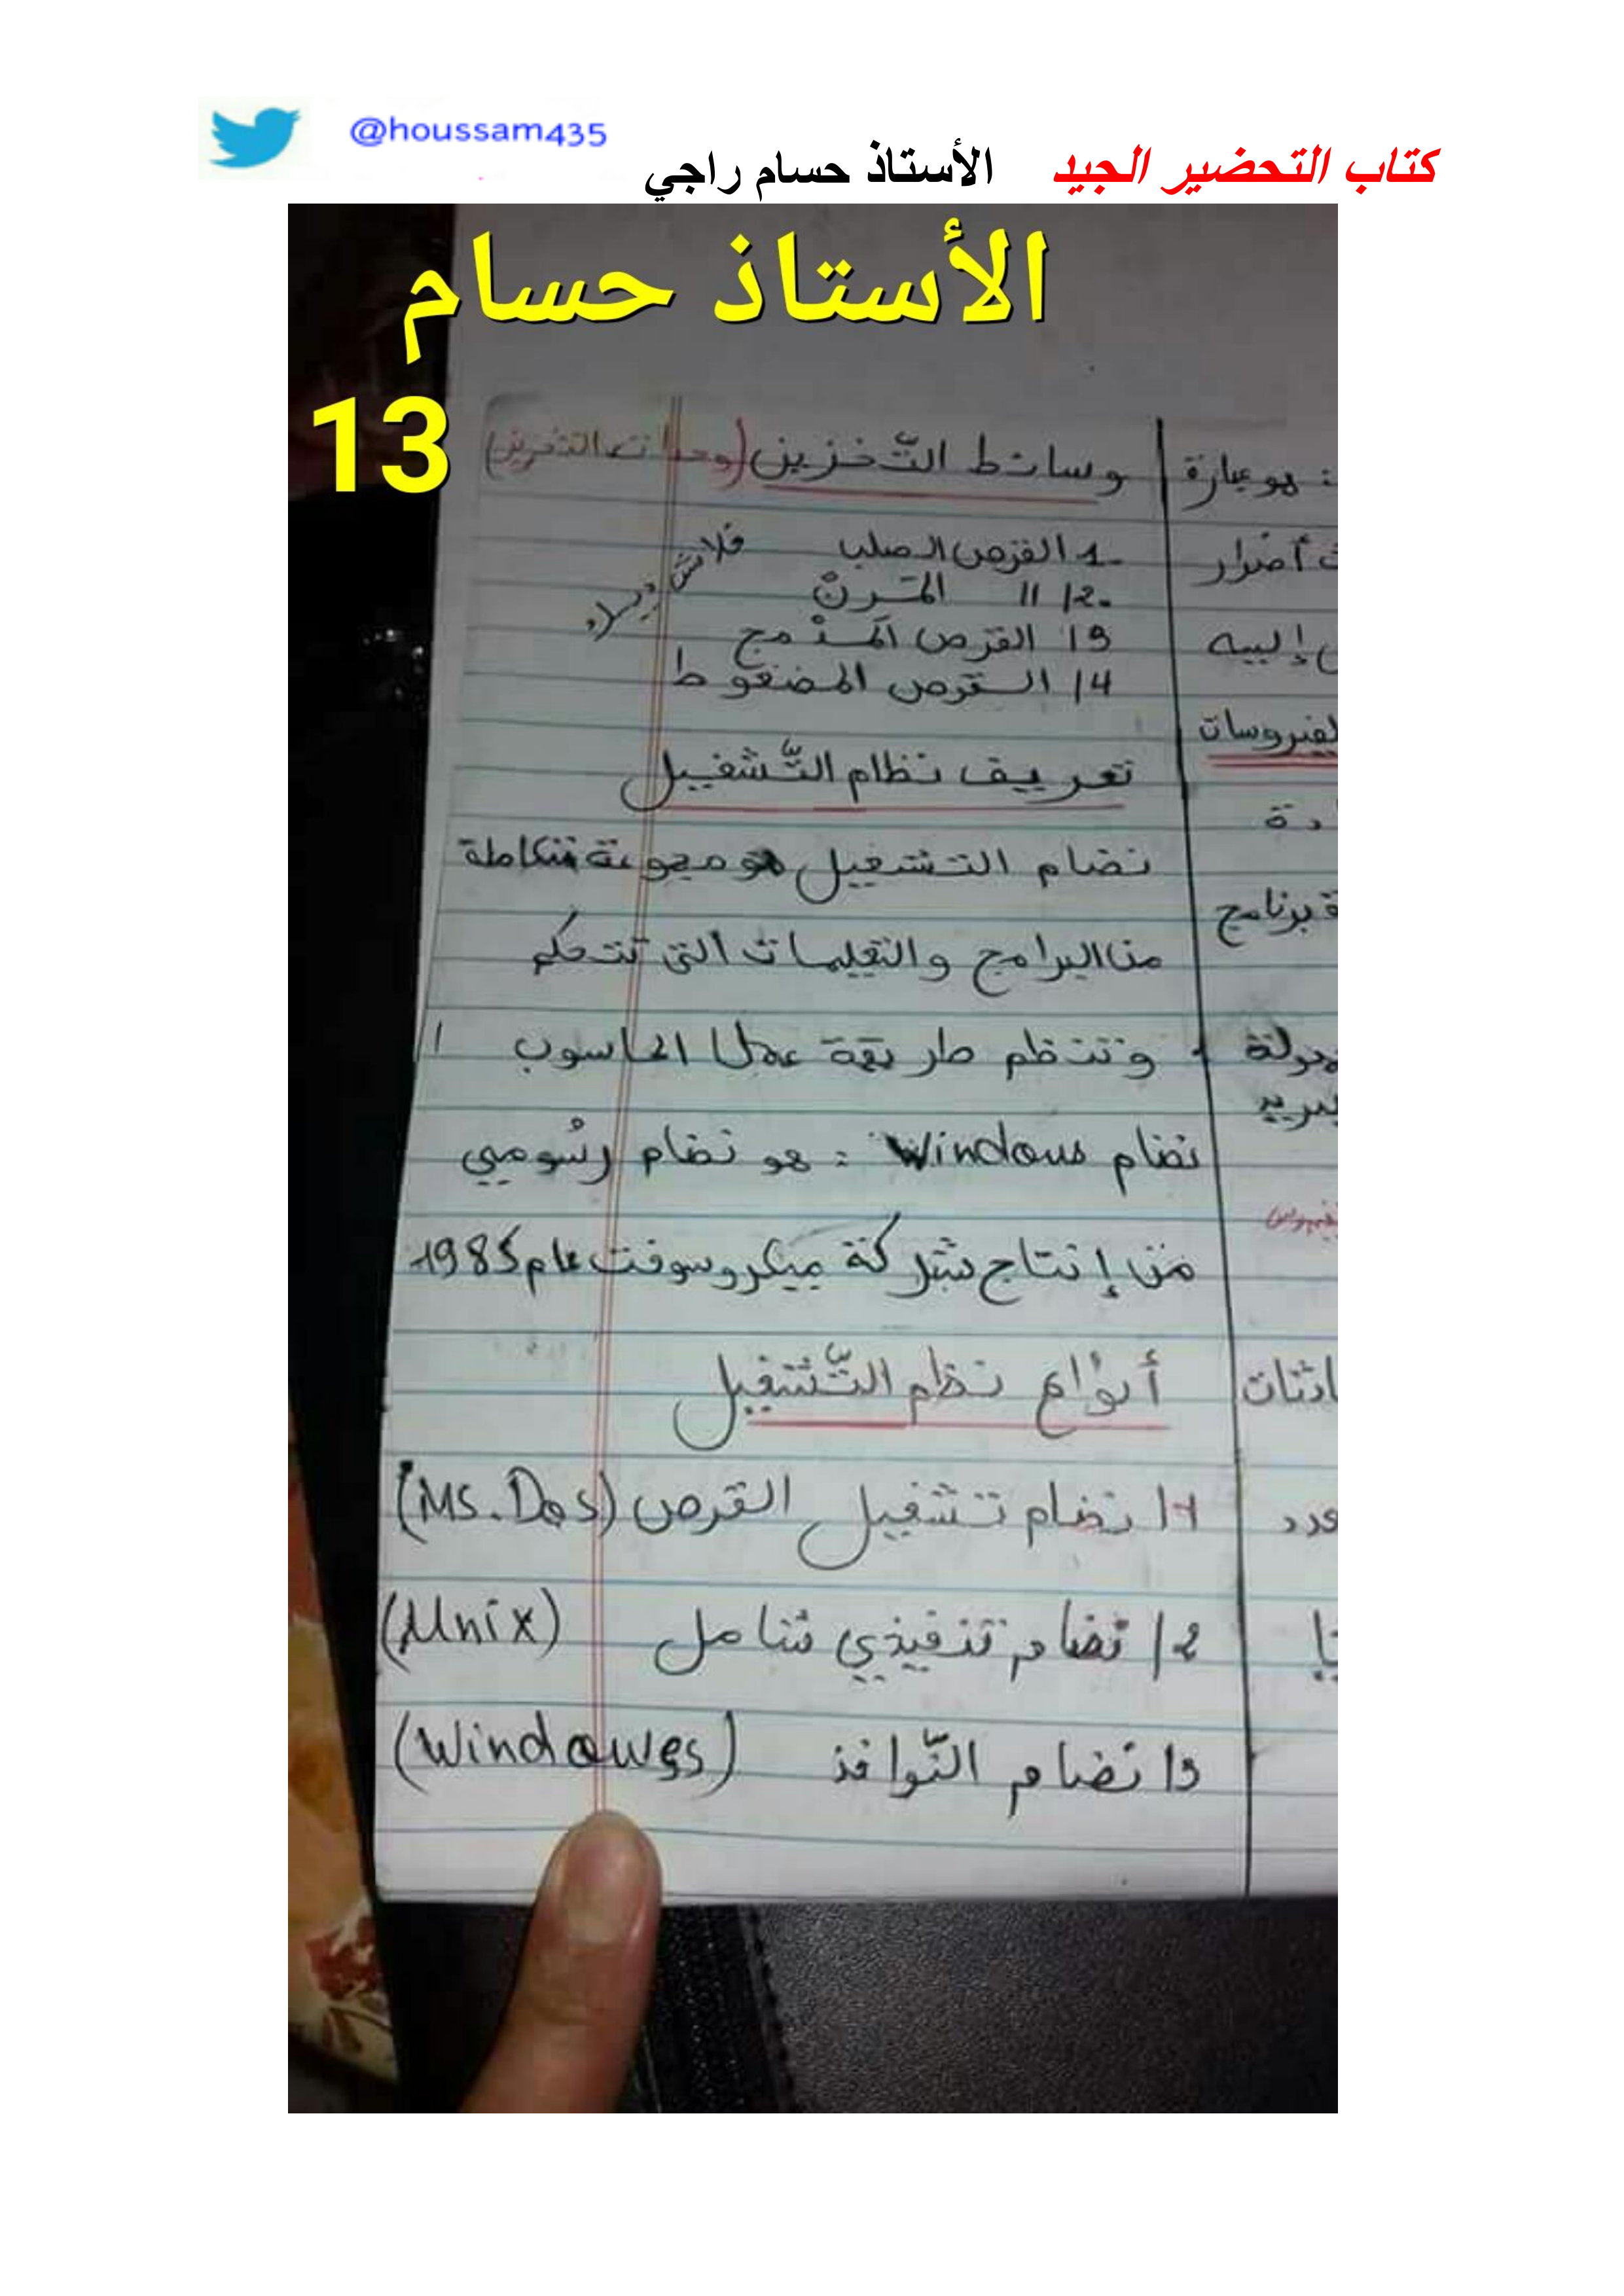 @houssam435
كتاب التحضير الجيد الأستاذ حسام راجي
الأستاذ حسام
13
وسائط التّخزين (وحدات التخزين)
1- القرص الصلب
2/ " المَرنْ
فلاش ديسك
3/ القرص المَدْمج
4/ القرص المضغوط
تعريف نظام التّشغيل
نضام التشغيل هو مجموعة متكاملة
من البرامج والتعليمات التي تتحكم
وتنظم طريقة عمل الحاسوب
نضام Windous : هو نضام رسُومي
من إنتاج شركة ميكروسوفت عام 1985
أنوْاع نظم التّشغيل
1/ نضام تشغيل القرص (Ms.Dos)
2/ نضام تنفيذي شامل (Unix)
3/ نضام النّوافذ (Windowes)
: هو عبارة
أضرار
إليه
الفيروسات
ة برنامج